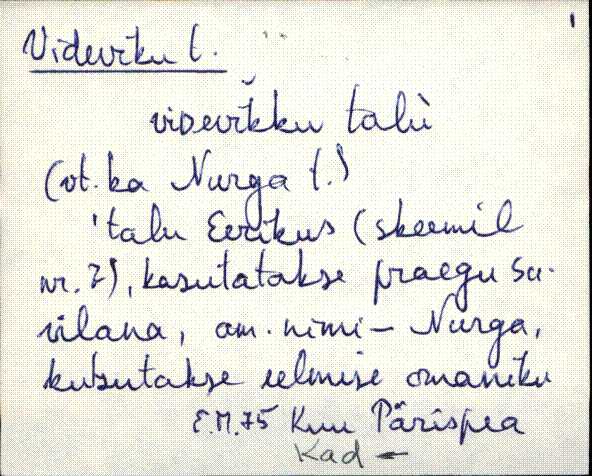 1
Videviku t.
viDevìkku talù
(vt. ka Nurga t.)
'talu Eerikus (skeemil
nr. 7), kasutatakse praegu su-
vilana, am. nimi – Nurga,
kutsutakse eelmise omaniku
E.M.75 Kuu Pärispea
Kad ←